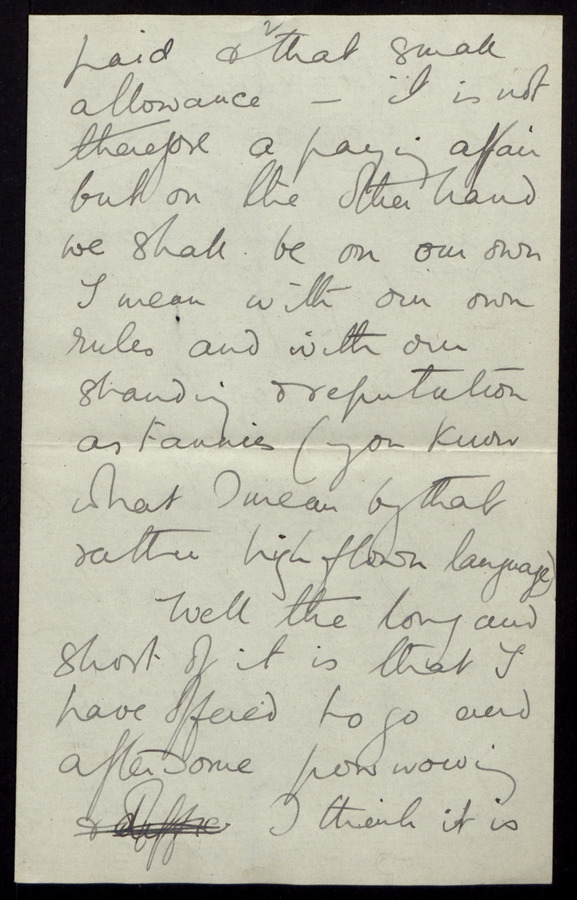 paid & that small
allowance – it is not
therefore a paying affair
but on the other hand
we shall be on our own
I mean with our own
rules and with our
standing & reputation
as Fannies (you know
what I mean by that
rather high flown language)
Well the long and
short of it is that I
have offered to go and
after some pow wowing
I think it is